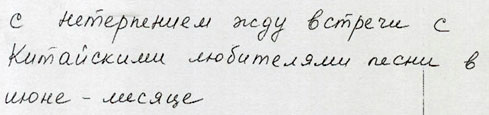 с нетерпением жду встречи с
Китайскими любителями песни в
июне - месяце